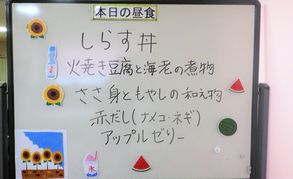 本日の昼食
しらす丼
火焼き豆腐と海老の煮物
ささ身ともやしの和え物
赤だし(ナメコ・ネギ)
アップルゼリー
氷